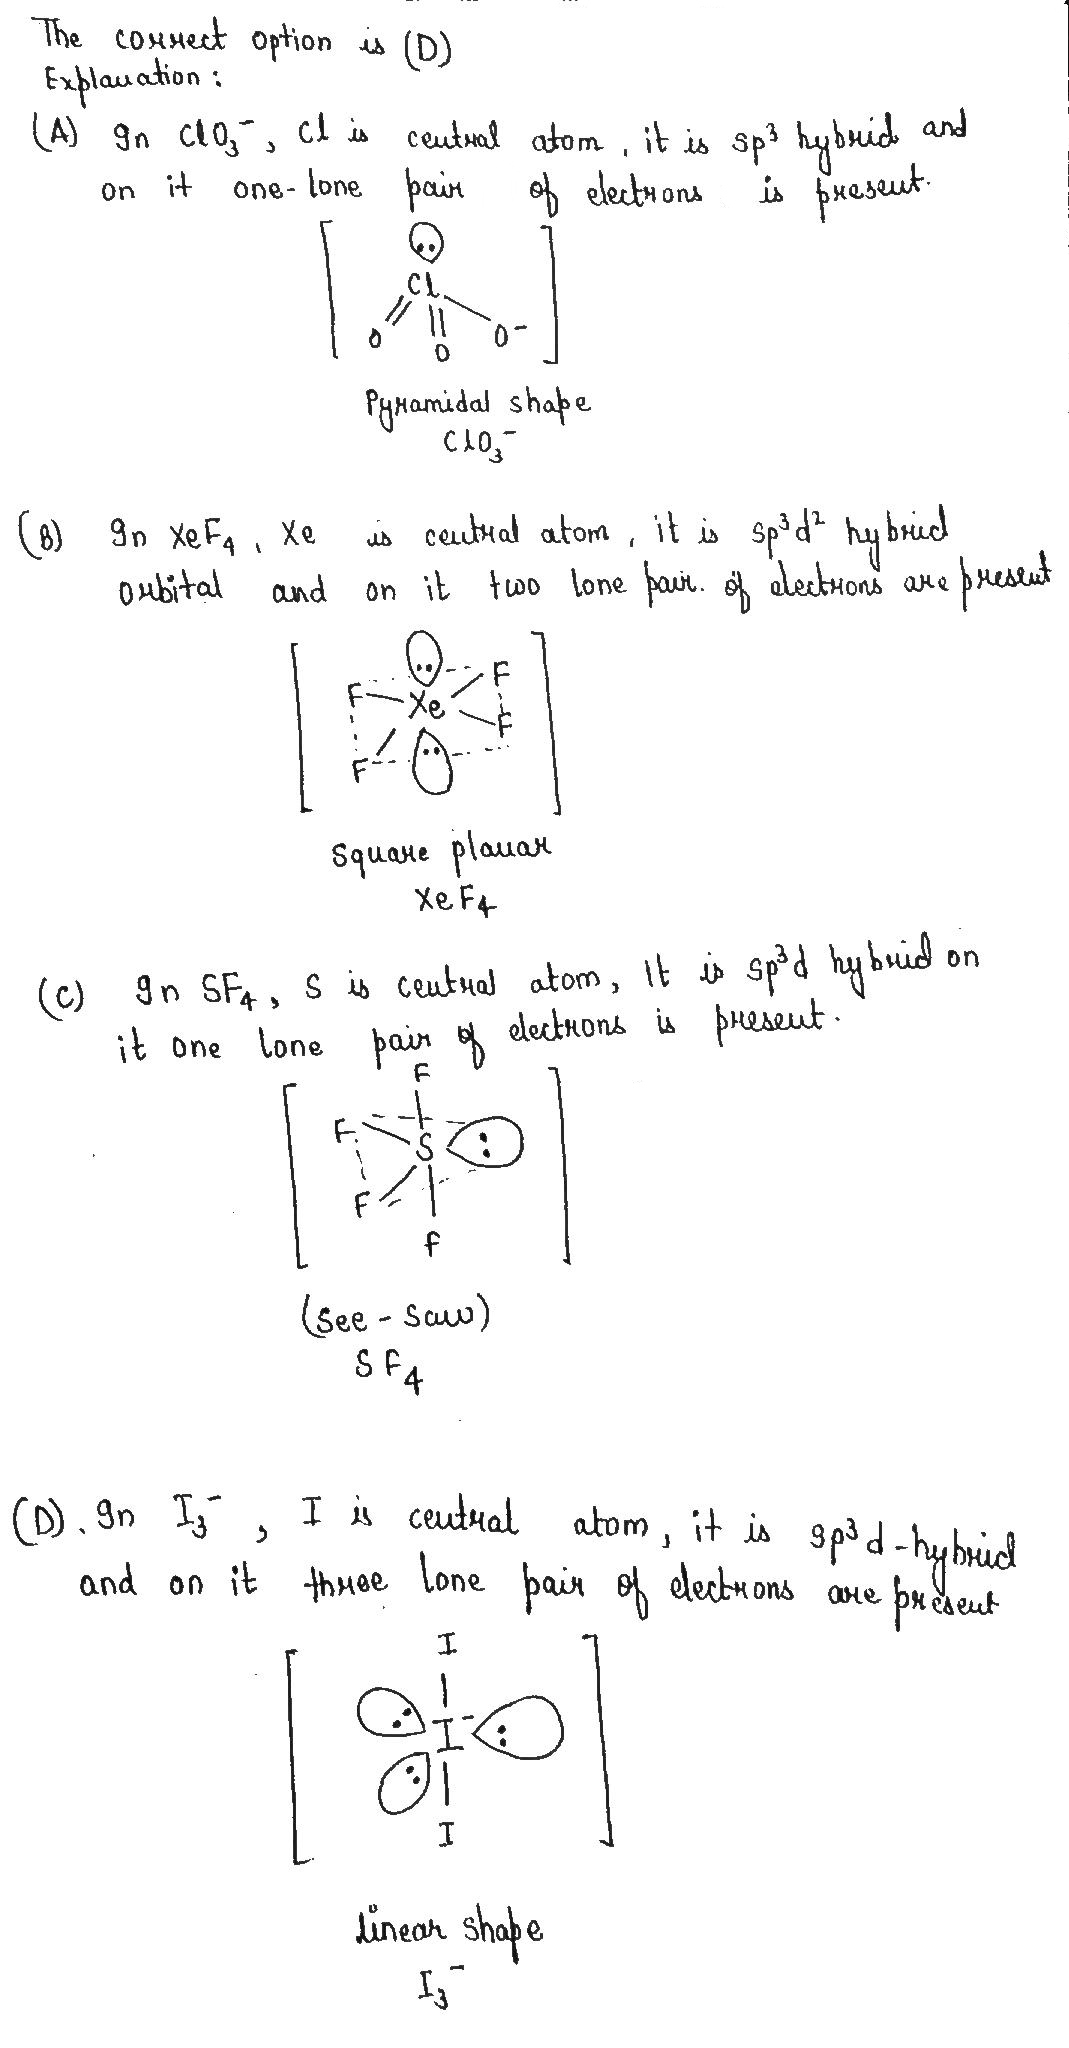 The correct option is (D)
Explanation :
(A) In ClO₃⁻, Cl is central atom, it is sp³ hybrid and
on it one-lone pair of electrons is present.
Cl
O O O⁻
Pyramidal shape
ClO₃⁻
(B) In XeF₄, Xe is central atom, it is sp³d² hybrid
orbital and on it two lone pair. of electrons are present
F F
Xe
F F
Square planar
XeF₄
(C) In SF₄, S is central atom, It is sp³d hybrid on
it one lone pair of electrons is present.
F
F S
F
F
(See-Saw)
SF₄
(D). In I₃⁻, I is central atom, it is sp³d-hybrid
and on it three lone pair of electrons are present
I
I⁻
I
Linear shape
I₃⁻